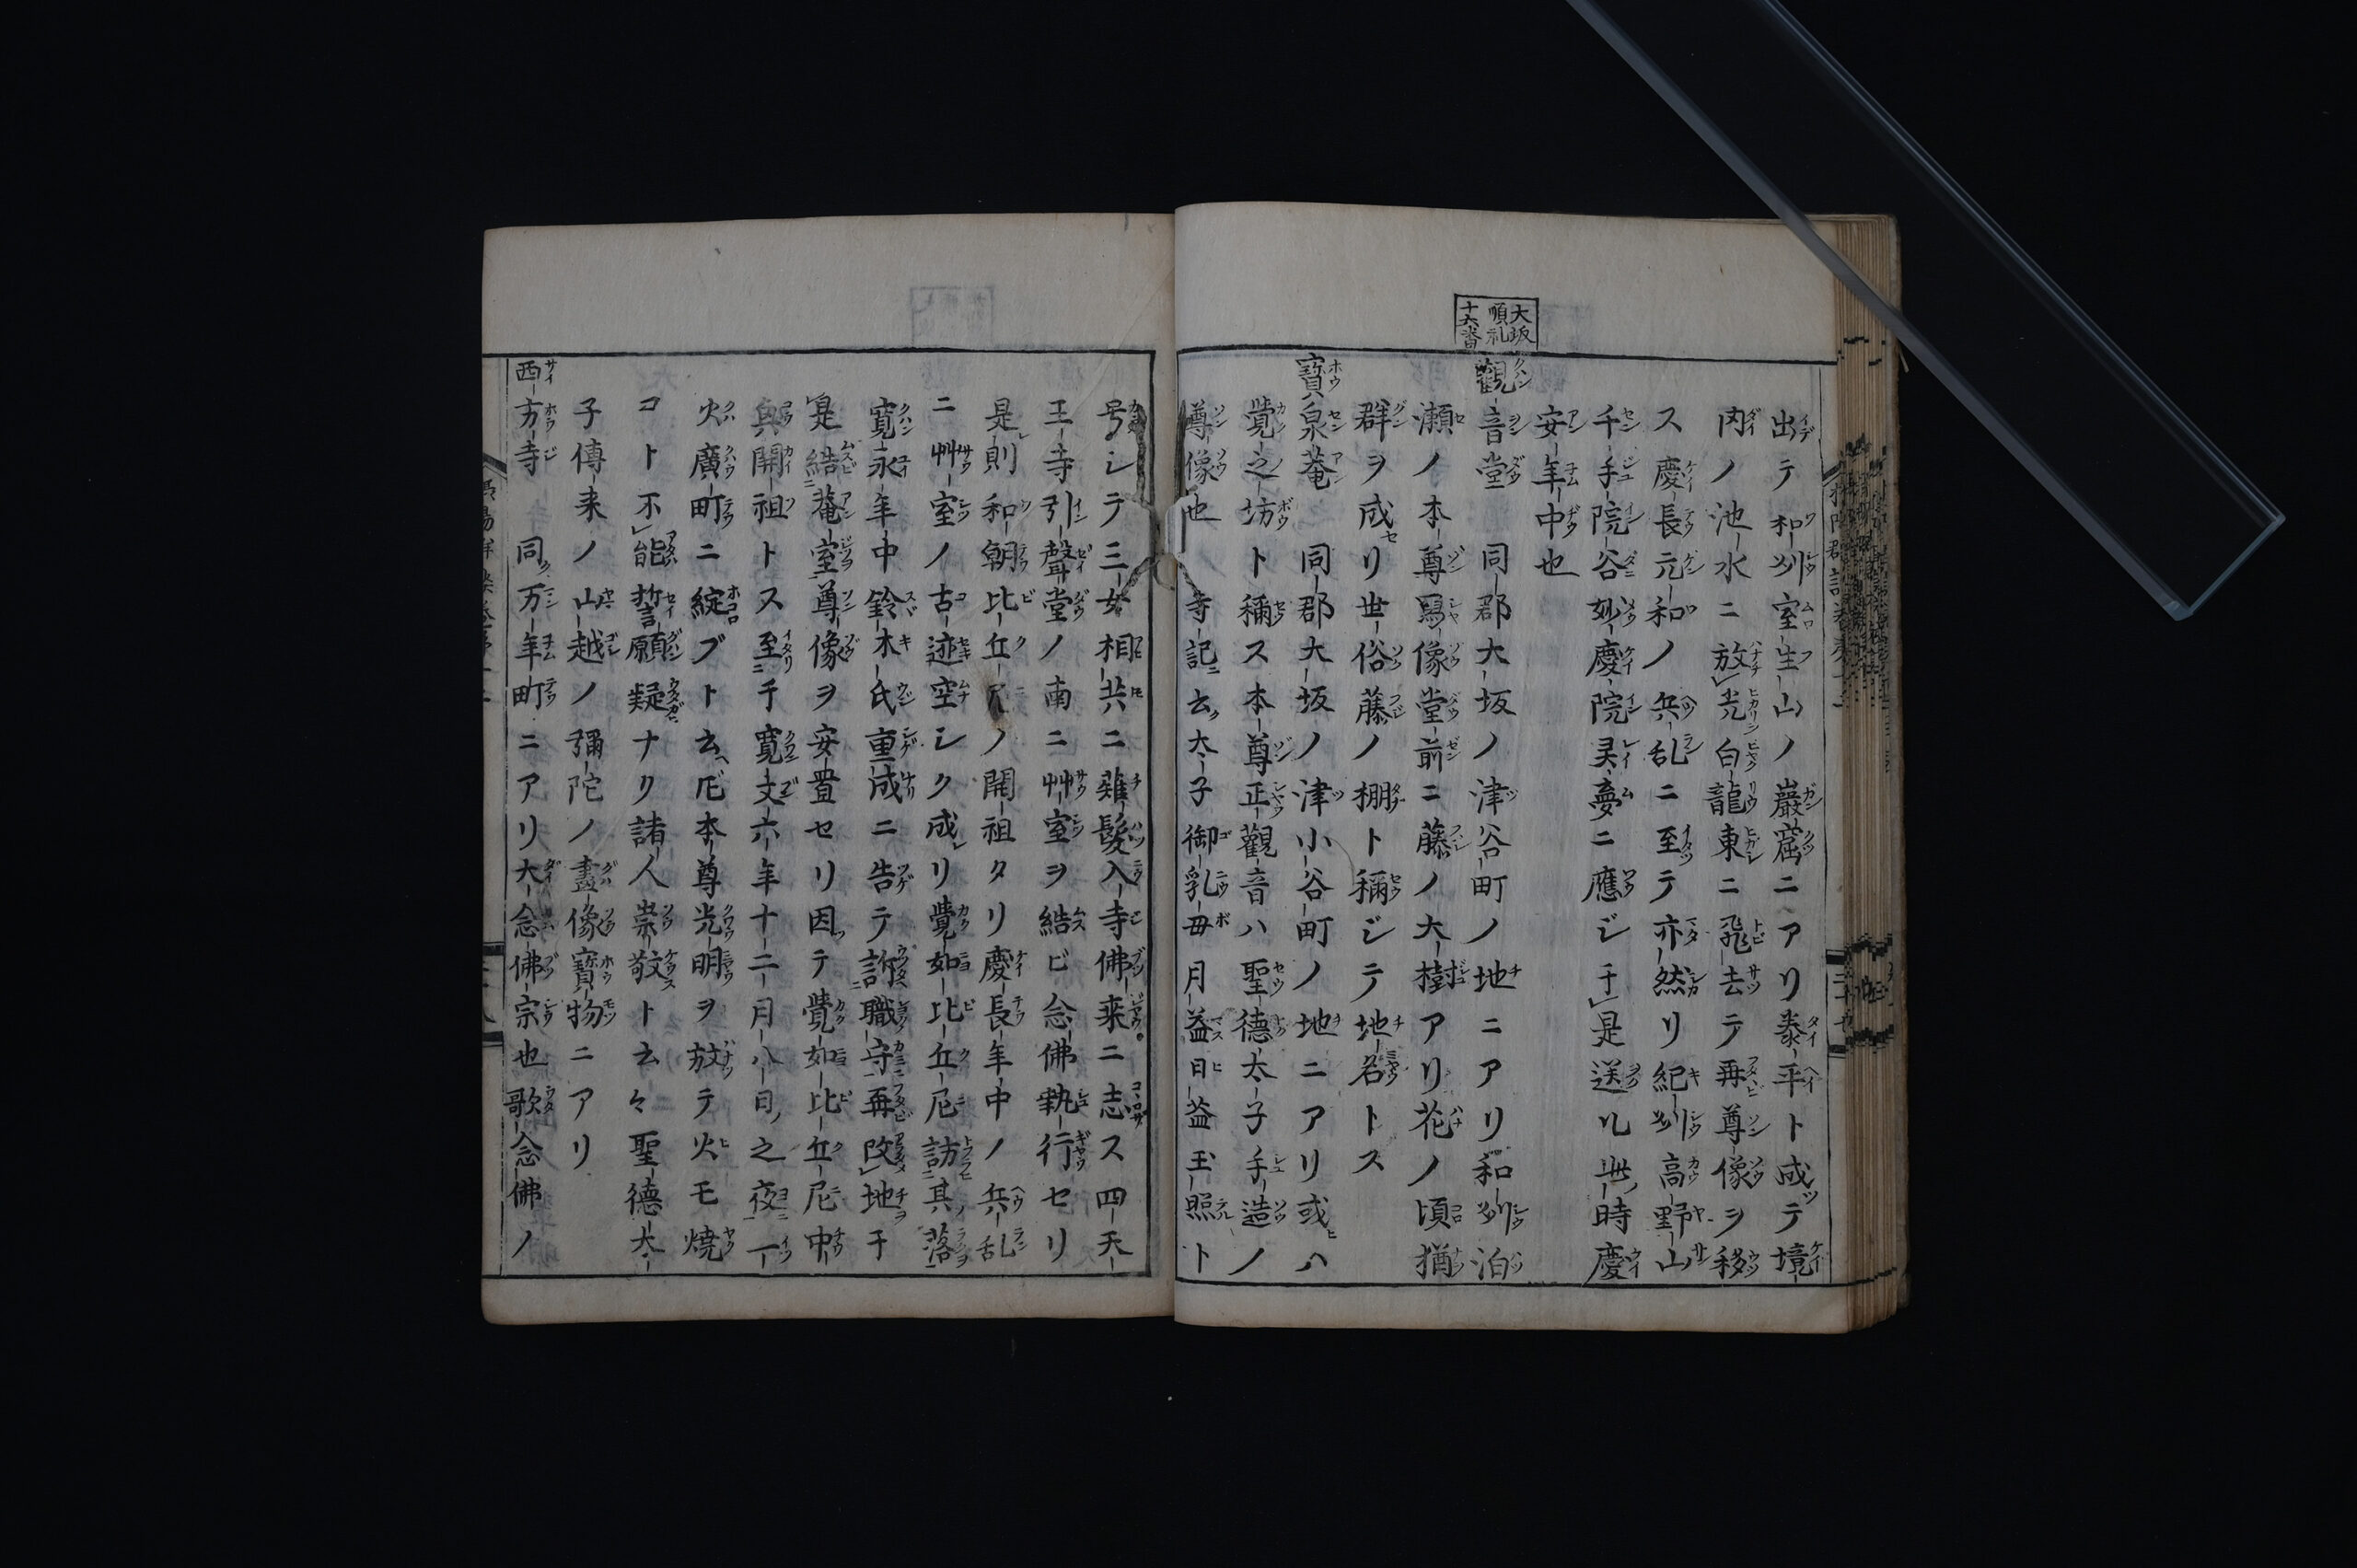 出テ和州室生山ノ巖窟ニアリ泰平ト成テ境
内ノ池水ニ放光白龍東ニ飛去テ再尊像ヲ移
ス慶長元和ノ兵乱ニ至テ亦然リ紀州高野山
千手院谷妙慶院灵夢ニ應ジ于是送ル此時慶
安年中也
大坂順礼十六番
觀音堂 同郡大坂ノ津谷町ノ地ニアリ和州泊
瀬ノ本尊寫像堂前ニ藤ノ大樹アリ花ノ頃猶
群ヲ成セリ世俗藤ノ棚ト稱ジテ地名トス
寶泉菴 同郡大坂ノ津小谷町ノ地ニアリ或ハ
覺之坊ト稱ス本尊正觀音ハ聖德太子手造ノ
尊像也 寺記云太子御乳毋月益日益玉照ト
号シテ三女相共ニ雉髮入寺佛乗ニ志ス四天
王寺引聲堂ノ南ニ艸室ヲ結ビ念佛執行セリ
是則和朝比丘尼ノ開祖タリ慶長年中ノ兵乱
ニ艸室ノ古迹空シク成リ覺如比丘尼訪其落
寛永年中鈴木氏重成ニ告テ訴職守再改地于
是結菴室尊像ヲ安置セリ因テ覺如比丘尼中
興開祖トス至于寛文六年十二月八日之夜一
火廣町ニ綻ブト云ヘ𪜈本尊光明ヲ放テ火モ燒
コト不能誓願疑ナリ諸人崇敬ト云々聖德太
子傳来ノ山越ノ彌陀ノ畫像寶物ニアリ
西方寺 同万年町ニアリ大念佛宗也歌念佛ノ